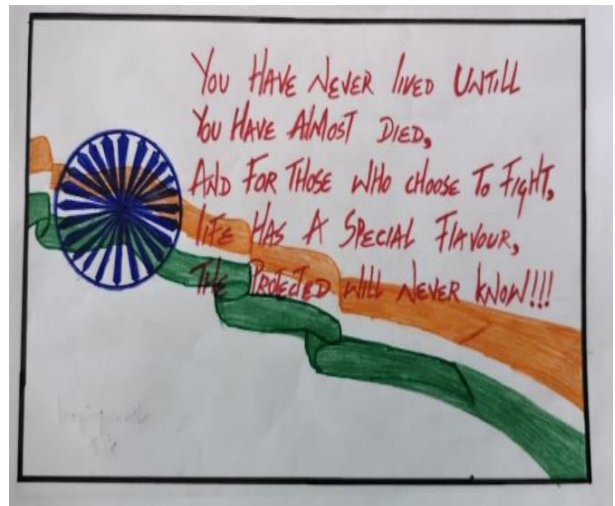 YOU HAVE NEVER LIVED UNTILL
YOU HAVE ALMOST DIED,
AND FOR THOSE WHO CHOOSE TO FIGHT,
LIFE HAS A SPECIAL FLAVOUR,
THE PROTECTED WILL NEVER KNOW!!!